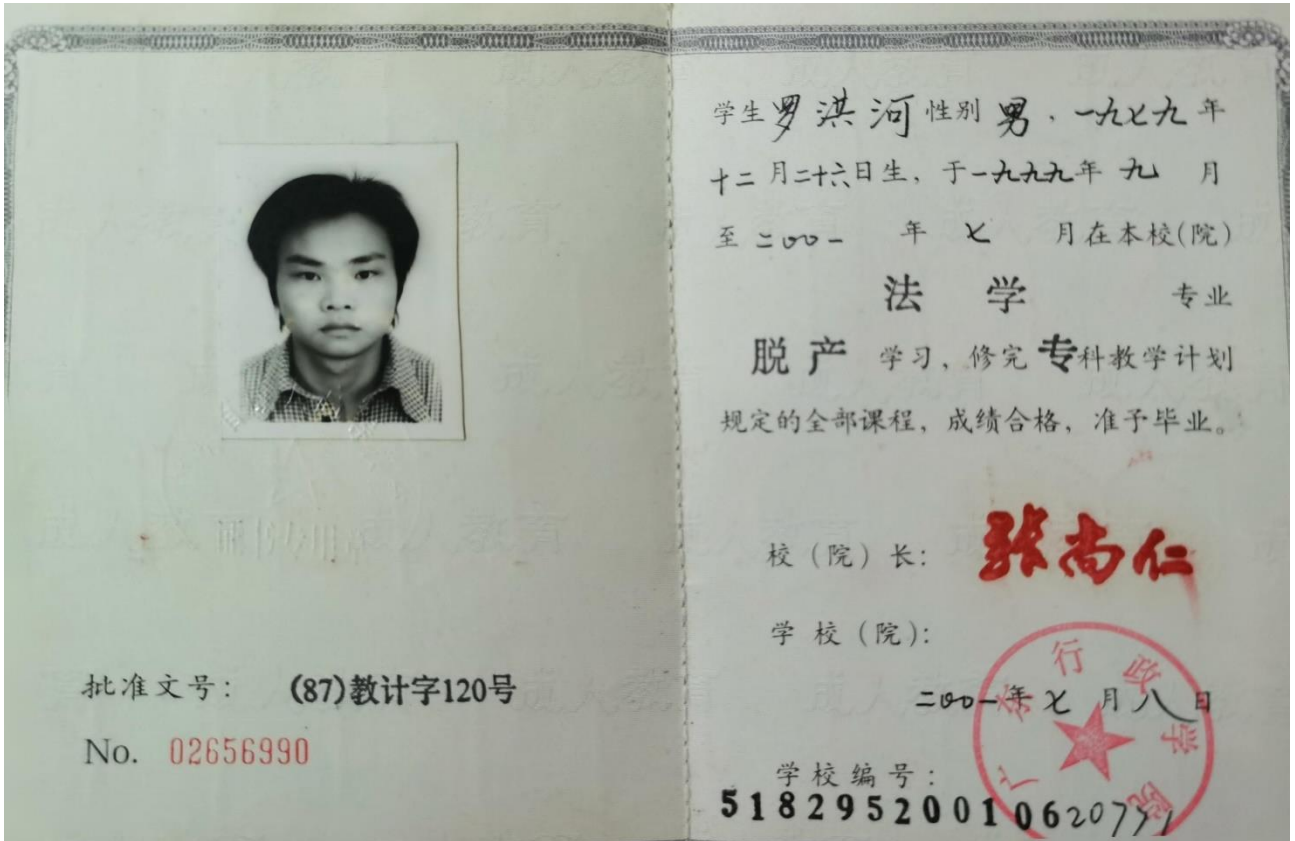 批准文号: (87)教计字120号
No. 02656990
学生罗洪河性别男、一九七九年
十二月二十六日生, 于一九九九年九月
至二〇〇一年七月在本校(院)
法学专业
脱产学习, 修完专科教学计划
规定的全部课程, 成绩合格, 准予毕业。
校(院)长: 张尚仁
学校(院):
广东行政学院
二〇〇一年七月八日
学校编号:
518295200106
成人教育